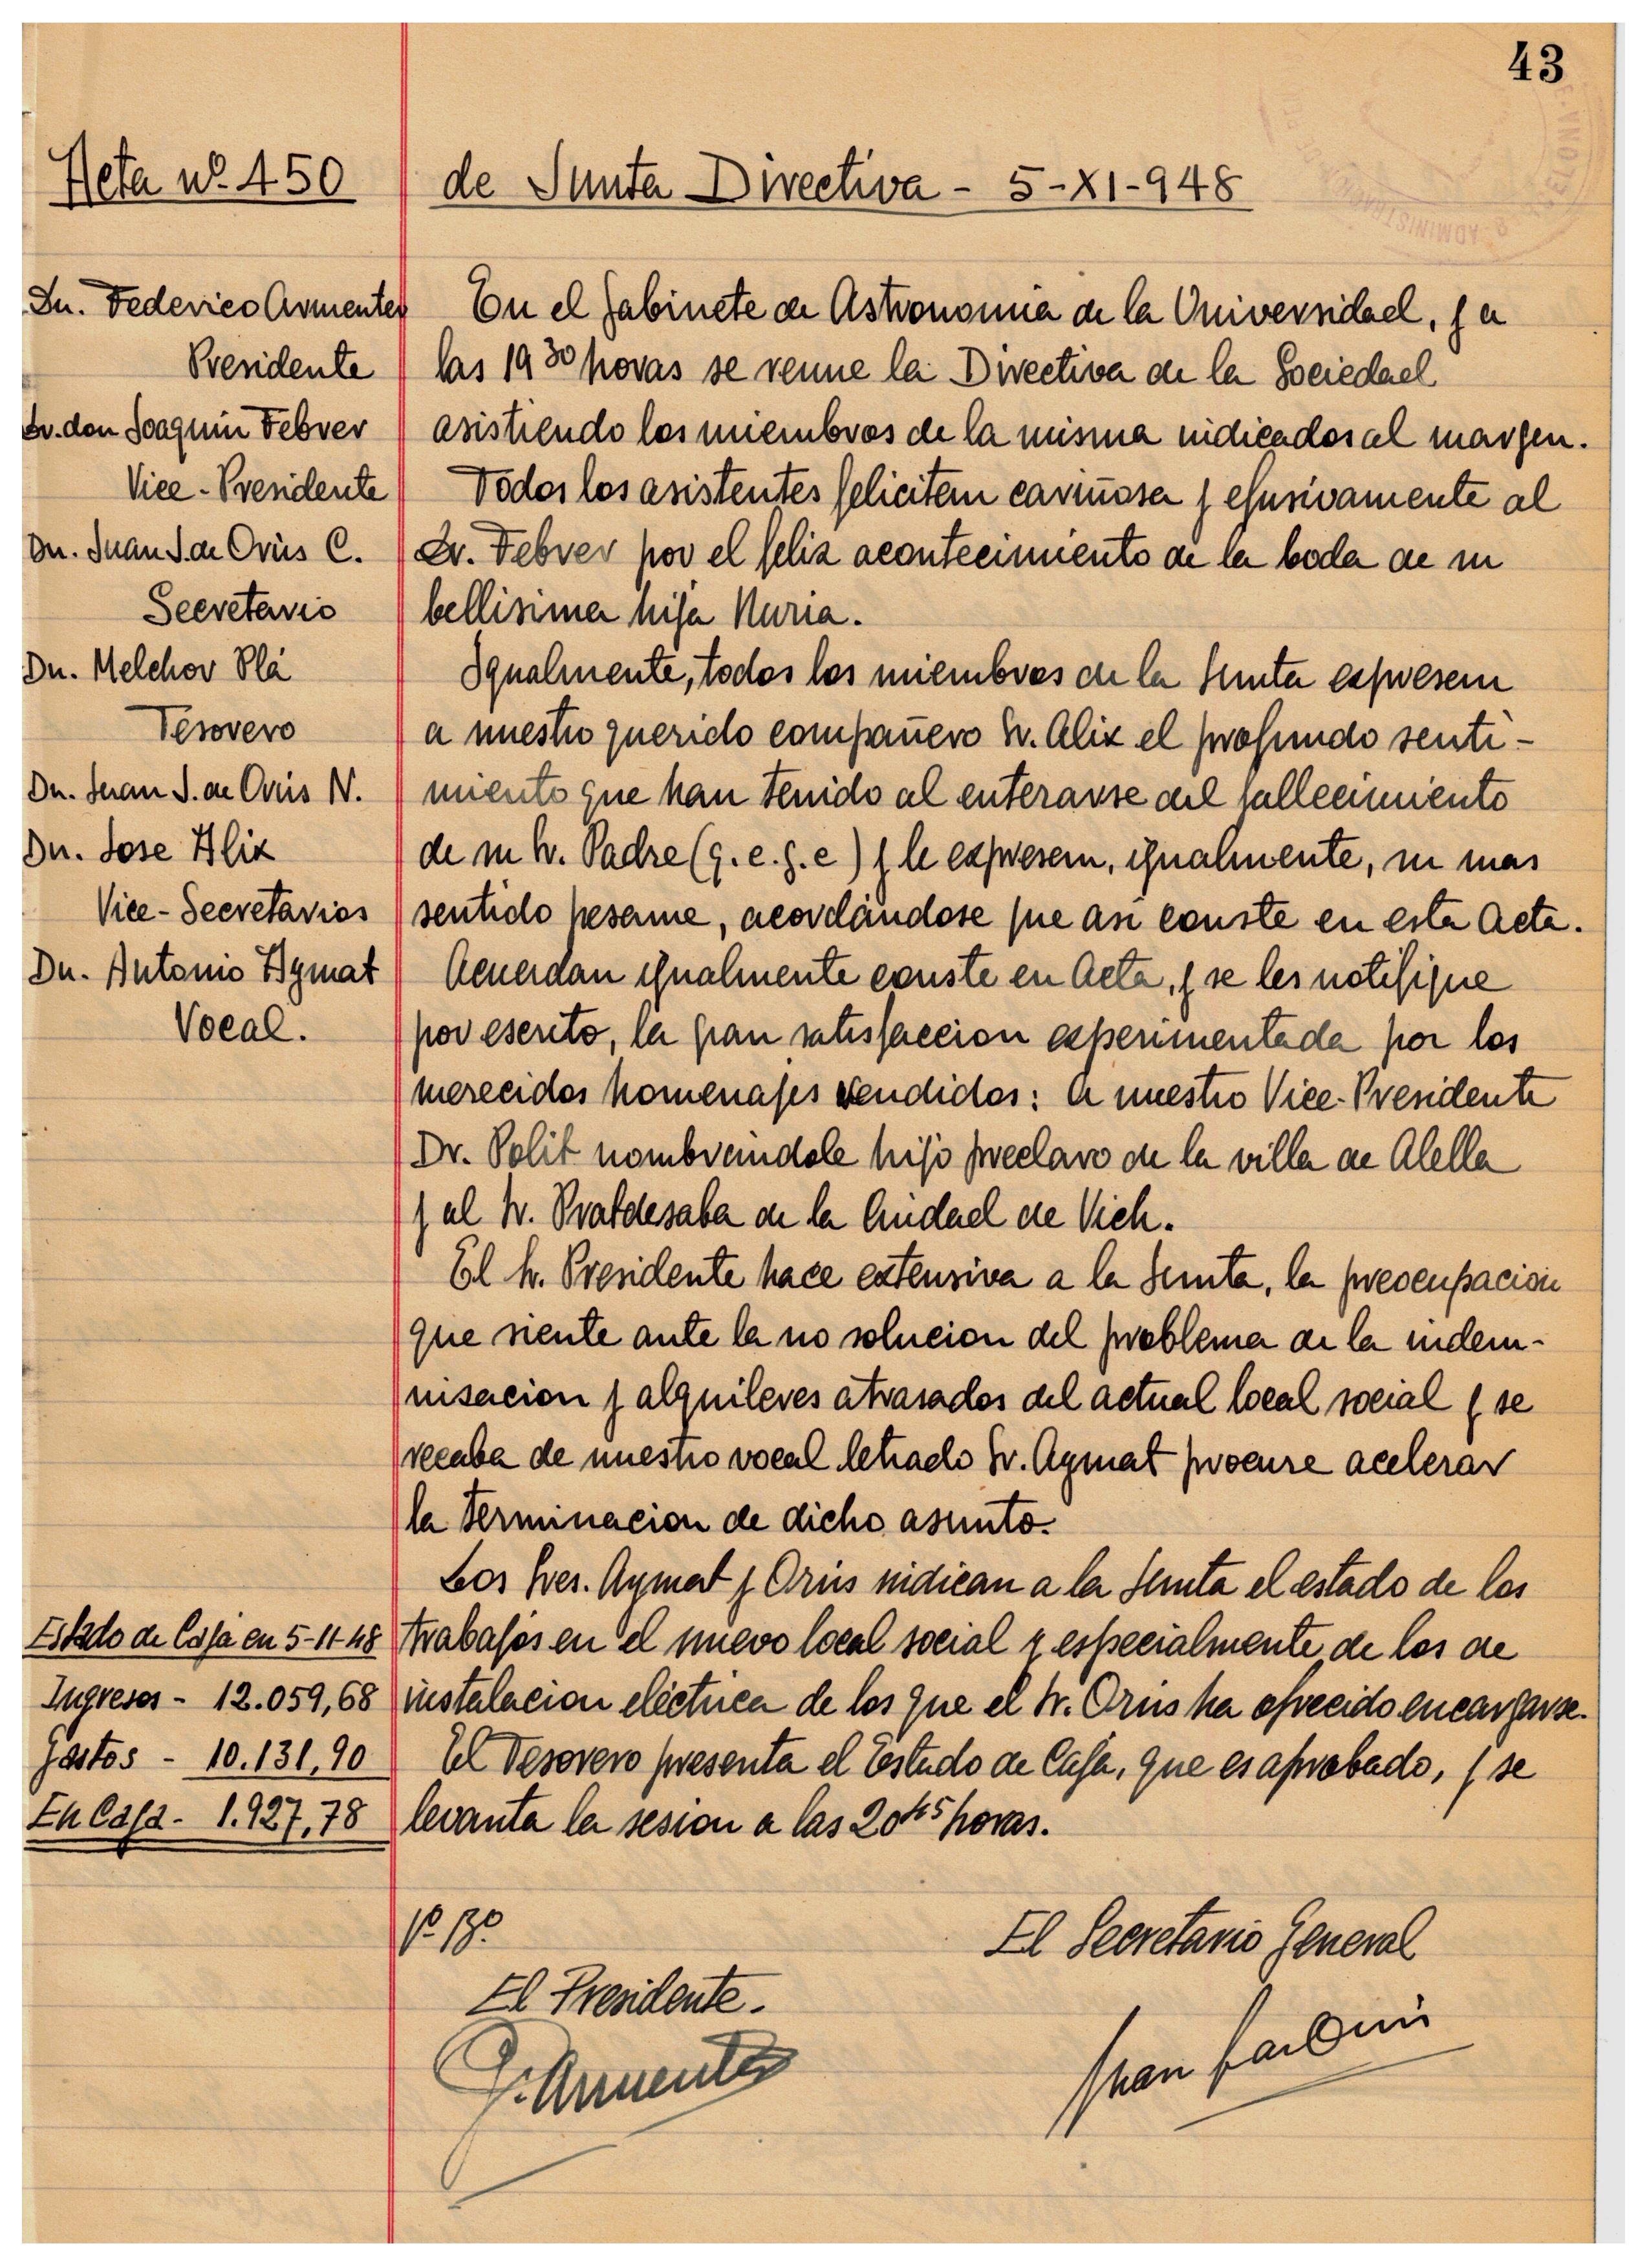 43
Acta nº 450 de Junta Directiva - 5-XI-948
Dn. Federico Armenter
Presidente
Sr. don Joaquín Febrer
Vice-Presidente
Dn. Juan J. de Orús C.
Secretario
Dn. Melchor Plá
Tesorero
Dn. Juan J. de Orús N.
Dn. Jose Alix
Vice-Secretarios
Dn. Antonio Aymat
Vocal.
En el gabinete de Astronomia de la Universidad, y a
las 19 30 horas se reune la Directiva de la Sociedad
asistiendo los miembros de la misma indicados al margen.
Todos los asistentes felicitan cariñosa y efusivamente al
Sr. Febrer por el feliz acontecimiento de la boda de su
bellisima hija Nuria.
Igualmente, todos los miembros de la Junta expresan
a nuestro querido compañero Sr. Alix el profundo senti-
miento que han tenido al enterarse del fallecimiento
de su Sr. Padre (q.e.g.e) y le expresan, igualmente, su mas
sentido pesame, acordándose que asi conste en esta Acta.
Acuerdan igualmente conste en Acta, y se les notifique
por escrito, la gran satisfaccion experimentada por los
merecidos homenajes rendidos: a nuestro Vice-Presidente
Dr. Polit nombrandole hijo preclaro de la villa de Alella
y al Sr. Pratdesaba de la Ciudad de Vich.
El Sr. Presidente hace extensiva a la Junta, la preocupación
que siente ante la no solucion del problema de la indem-
nisacion y alquileres atrasados del actual local social y se
recaba de nuestro vocal letrado Sr. Aymat procure acelerar
la terminacion de dicho asunto.
Los Sres. Aymat y Orús indican a la Junta el estado de los
trabajos en el nuevo local social y especialmente de los de
instalacion eléctrica de los que el Sr. Orus ha ofrecido encargarse.
El Tesorero presenta el Estado de Caja, que es aprobado, y se
levanta la sesion a las 20 45 horas.
Estado de Caja en 5-11-48
Ingresos - 12.059,68
Gastos - 10.131,90
En Caja - 1.927,78
Vº Bº
El Presidente.
F. Armenter
El Secretario General
Juan J. de Orús